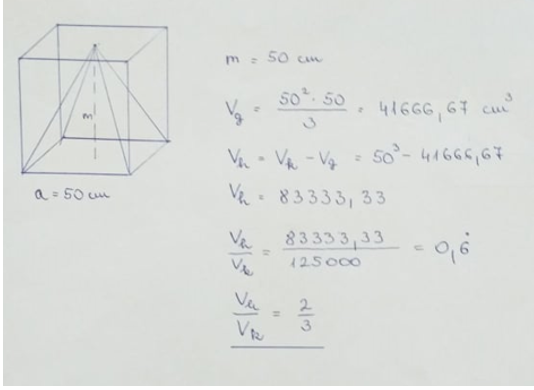 m
a = 50 cm
m = 50 cm
V_g = \frac{50² · 50}{3} = 41666,67 cm³
V_h = V_k - V_g = 50³ - 41666,67
V_h = 83333,33
\frac{V_h}{V_k} = \frac{83333,33}{125000} = 0,6̇
\frac{V_h}{V_k} = \frac{2}{3}